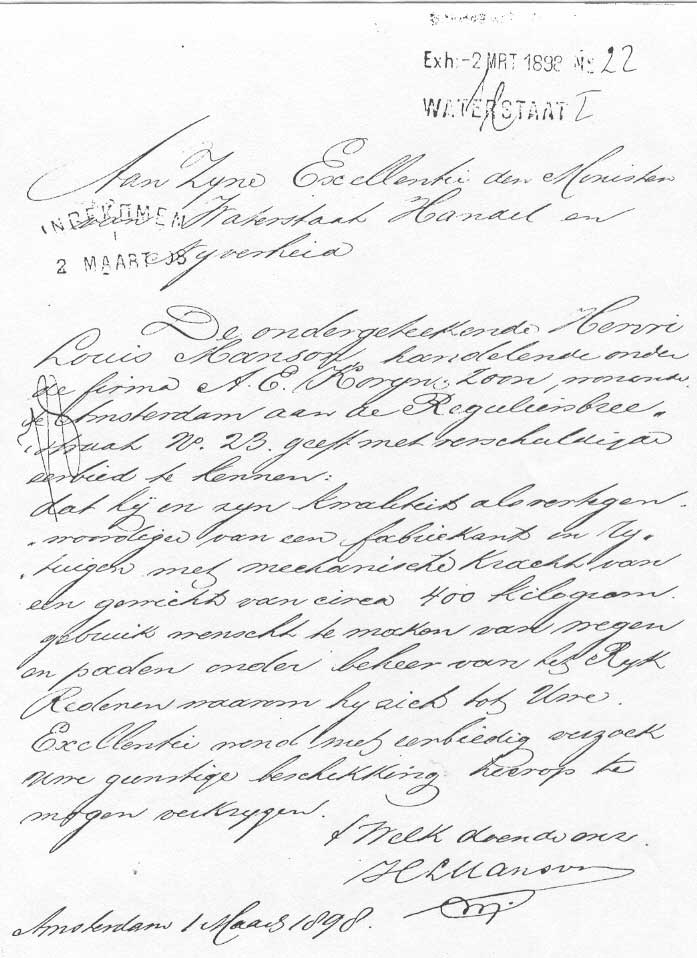 Exh: -2 MRT 1898 No 22
WATERSTAAT I
Aan Zyne Excellentie den Minister
van Waterstaat Handel en
Nyverheid
INGEKOMEN
2 MAART 98
De ondergeteekende Henri
Louis Manson, handelende onder
de firma A. E. Koryn & Zoon, wonende
te Amsterdam aan de Regulierbree-
straat No. 23. geeft met verschuldigde
eerbied te kennen:
dat hij en zyn kwaliteit als vertegen-
-woordiger van een fabriekant in ry-
-tuigen met mechanische kracht van
een gewicht van circa 400 kilogram.
gebruik wenscht te maken van wegen
en paden onder beheer van het Ryk
Redenen waarom hy zich tot Uwe
Excellentie wend met eerbiedig verzoek
Uwe gunstige beschikking hierop te
mogen verkrygen.
't Welk doende enz.
H L Manson
Amsterdam 1 Maart 1898.